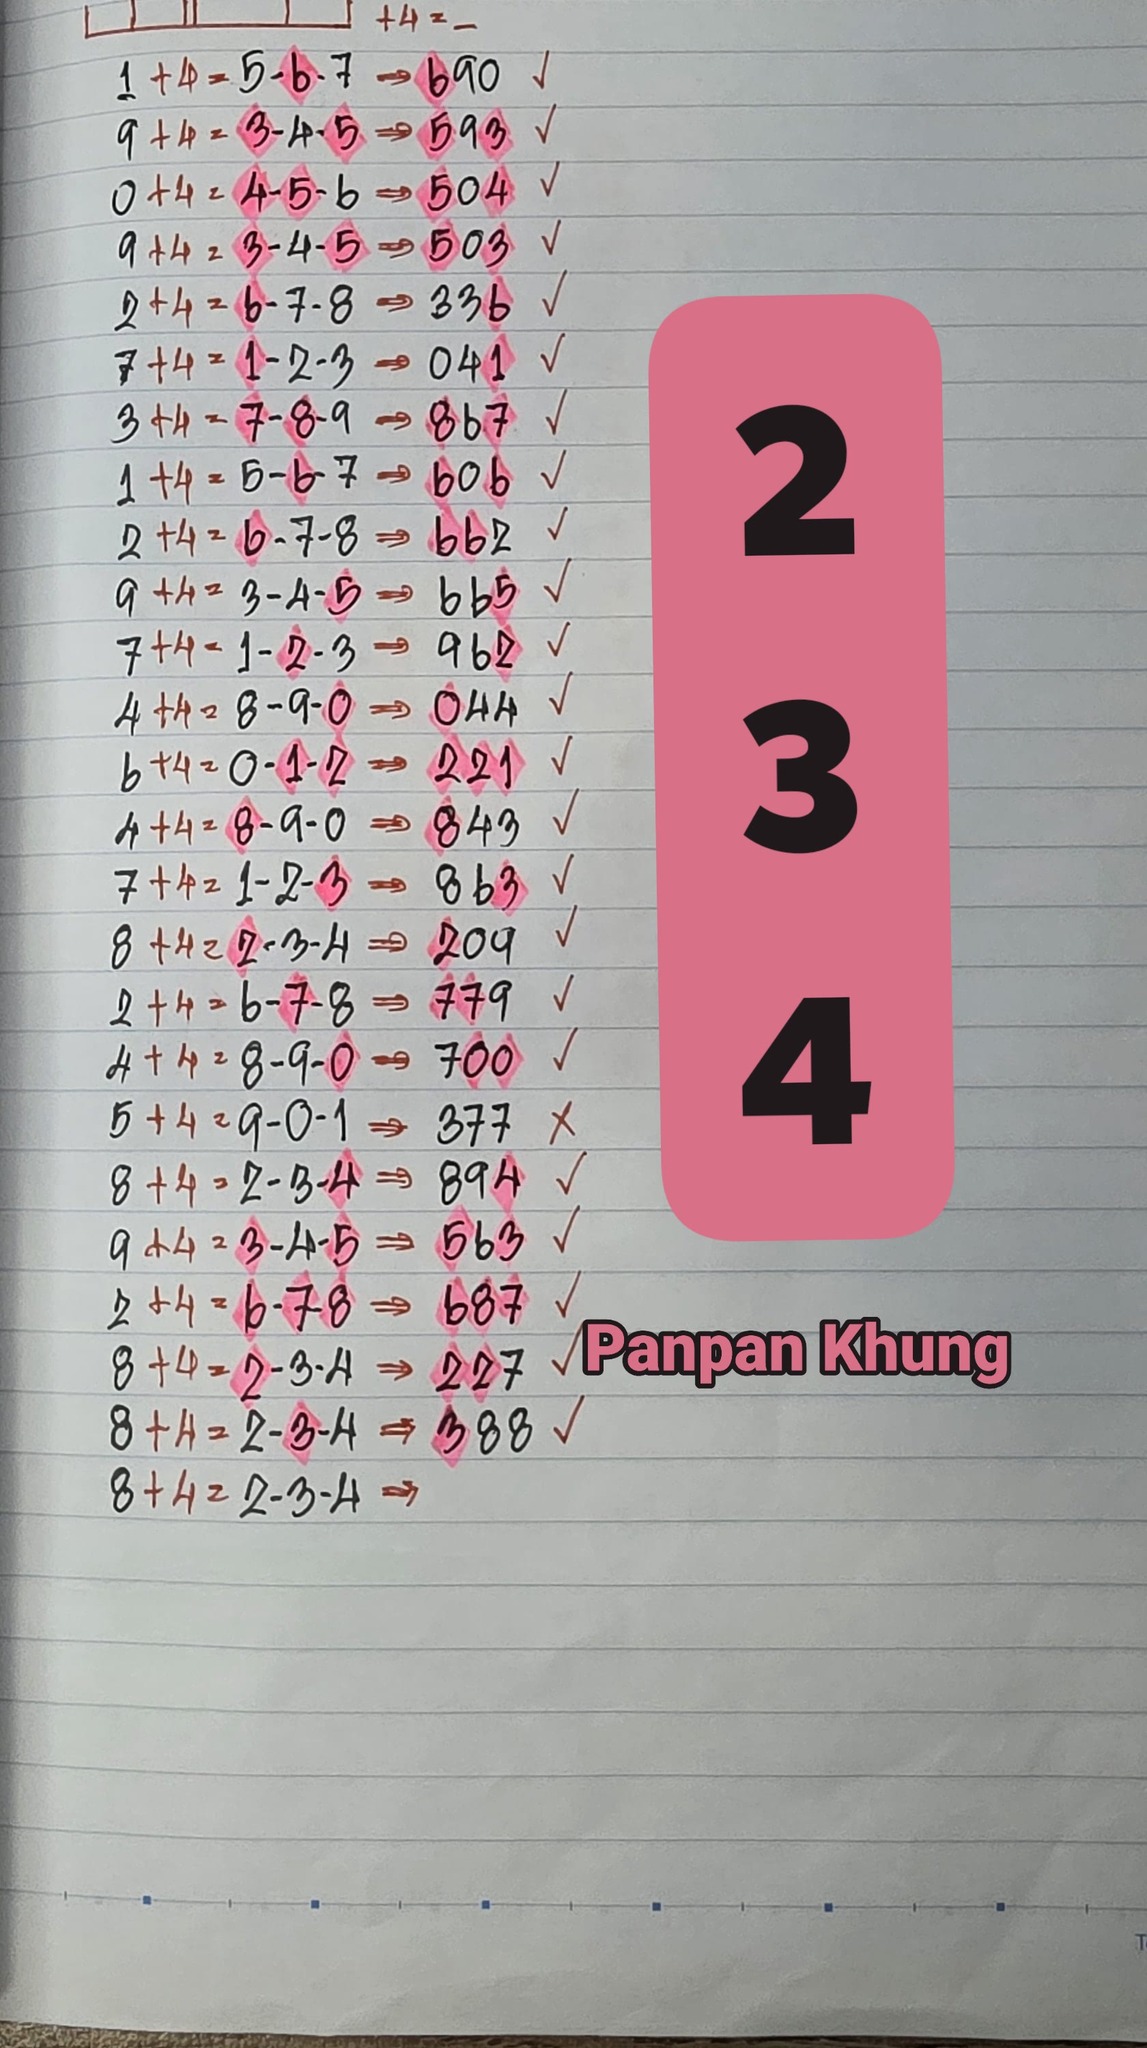 +4 = _
1 +4 = 5-6-7 ⇒ 690 ✓
9 +4 = 3-4-5 ⇒ 593 ✓
0 +4 = 4-5-6 ⇒ 504 ✓
9 +4 = 3-4-5 ⇒ 503 ✓
2 +4 = 6-7-8 ⇒ 336 ✓
7 +4 = 1-2-3 ⇒ 041 ✓
3 +4 = 7-8-9 ⇒ 867 ✓
1 +4 = 5-6-7 ⇒ 606 ✓
2 +4 = 6-7-8 ⇒ 662 ✓
9 +4 = 3-4-5 ⇒ 665 ✓
7 +4 = 1-2-3 ⇒ 962 ✓
4 +4 = 8-9-0 ⇒ 044 ✓
6 +4 = 0-1-2 ⇒ 221 ✓
4 +4 = 8-9-0 ⇒ 843 ✓
7 +4 = 1-2-3 ⇒ 863 ✓
8 +4 = 2-3-4 ⇒ 209 ✓
2 +4 = 6-7-8 ⇒ 779 ✓
4 +4 = 8-9-0 ⇒ 700 ✓
5 +4 = 9-0-1 ⇒ 377 ✗
8 +4 = 2-3-4 ⇒ 894 ✓
9 +4 = 3-4-5 ⇒ 563 ✓
2 +4 = 6-7-8 ⇒ 687 ✓
8 +4 = 2-3-4 ⇒ 227 ✓
8 +4 = 2-3-4 ⇒ 388 ✓
8 +4 = 2-3-4 ⇒
2
3
4
Panpan Khung